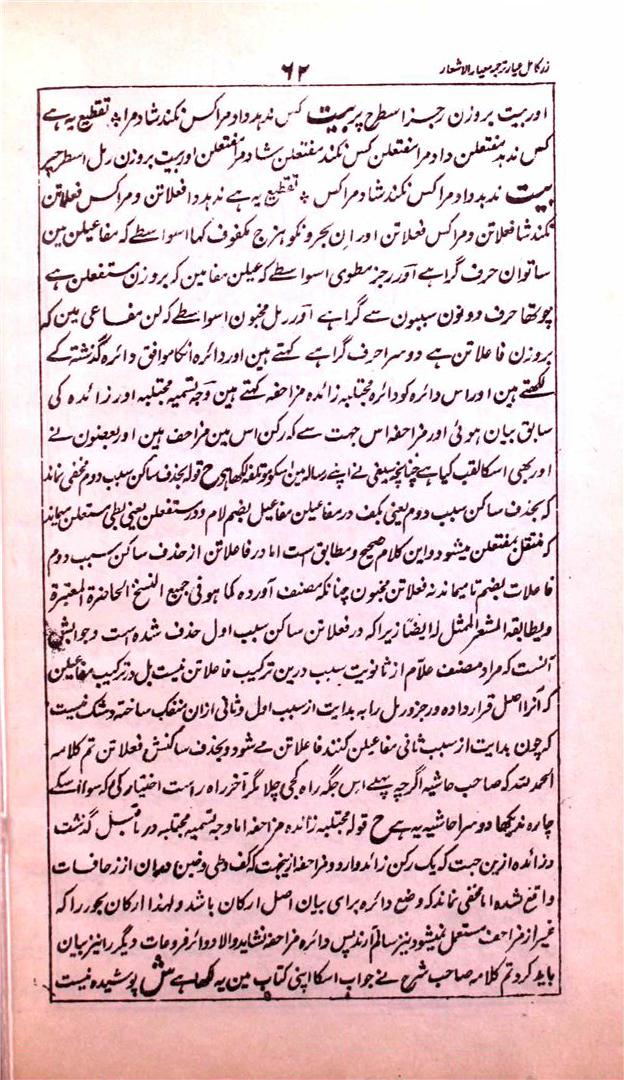 زر کامل عیار ترجمہ معیار الاشعار
۶۲
اور بیت بروزن رجز اسطرح پر بیت کس ندہد داد مرا کس نکند شاد مرا ؞ تقطیع یہ ہے
کس ندہد مفتعلن داد مرا مفتعلن کس نکند مفتعلن شاد مرا مفتعلن اور بیت بروزن رمل اسطرح پر
بیت ندہد داد مرا کس نکند شاد مرا کس ؞ تقطیع یہ ہے ندہد دا فعلاتن و مرا کس فعلاتن
نکند شا فعلاتن و مرا کس فعلاتن اور ان بحرونکو ہزج مکفوف کہا اسواسطے کہ مفاعیلن مین
ساتوان حرف گرا ہے اور رجز مطوی اسواسطے کہ عیلن مفا مین کہ بروزن مستفعلن ہے
چوتھا حرف دونون سببون سے گرا ہے اور رمل مخبون اسواسطے کہ لن مفاعی مین کہ
بروزن فاعلاتن ہے دوسرا حرف گرا ہے کہتے ہین اور دائرہ انکا موافق دائرہ گذشتہ کے
لکھتے ہین اور اس دائرہ کو دائرہ مجتلبہ زائدہ مزاحفہ کہتے ہین وجہ تسمیہ مجتلبہ اور زائدہ کی
سابق بیان ہوئی اور مزاحفہ اس جہت سے کہ رکن اس مین مزاحف ہین اور بعضون نے
اور بھی اسکا لقب کیا ہے چنانچہ سیفی نے اپنے رسالہ مین اسکو مؤتلفہ لکھا ہے ح قولہ بحذف ساکن سبب دوم مخفی نماند
کہ بحذف ساکن سبب دوم یعنی بکف در مفاعیلن مفاعیل بضم لام و در مستفعلن یعنی بطی مستعلن میماند
کہ منتقل بمفتعلن میشود و این کلام صحیح و مطابق است اما در فاعلاتن از حذف ساکن سبب دوم
فاعلات بضم تا میماند نہ فعلاتن مخبون چنانکہ مصنف آوردہ کما ہو فی جمیع النسخ الحاضرۃ المعتبرۃ
و یطابقہ المشعر الممثل لہ ایضا زیرا کہ در فعلاتن ساکن سبب اول حذف شدہ است و جوابش
آنست کہ مراد مصنف علام از ثانویت سبب درین ترکیب فاعلاتن نیست بل در ترکیب مفاعیلن
کہ آنرا اصل قرار دادہ و رجز و رمل را بہ بدایت از سبب اول و ثانی ازان منفک ساختہ و شک نیست
کہ چون بدایت از سبب ثانی مفاعیلن کنند فاعلاتن مے شود و بحذف ساکنش فعلاتن تم کلامہ
الحمد للہ کہ صاحب حاشیہ اگرچہ پہلے اس جگہ راہ کجی چلا مگر آخر راہ راست اختیار کی کہ سوا اسکے
چارہ ندیکھا دوسرا حاشیہ یہ ہے ح قولہ مجتلبہ زائدہ مزاحفہ اما وجہ تسمیہ مجتلبہ در ماقبل گذشت
و زائدہ ازین جہت کہ یک رکن زائد دارد و مزاحفہ ازینجہت کہ کف و طی و خبن دران از زحافات
واقع شدہ اما مخفی نماند کہ وضع دائرہ برای بیان اصل ارکان باشد و لہذا ارکان بحور را کہ
غیر از مزاحف مستعمل نمیشود نیز سالم آرند پس دائرہ مزاحفہ نشاید و الا دوائر فروعات دیگر را نیز بیان
باید کرد تم کلامہ صاحب شرح نے جواب اسکا اپنی کتاب مین یہ لکھا ہے ش پوشیدہ نیست